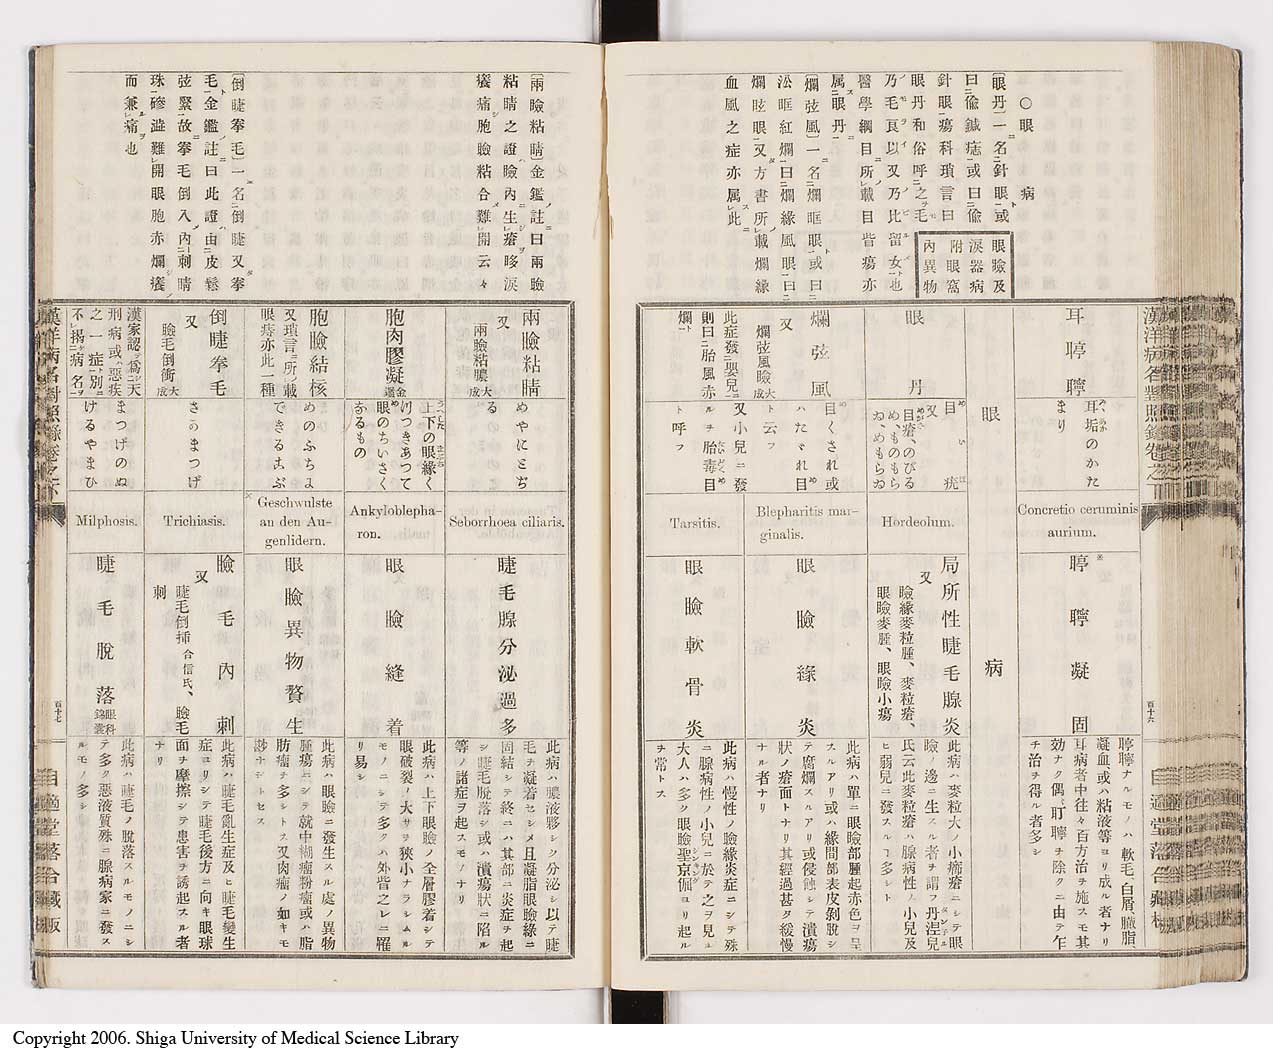 ○眼病
眼瞼及
淚器病
附眼窩
內異物
〔眼丹〕一名針眼或
曰偸鍼痣或曰偸
針眼瘍科瑣言曰
眼丹和俗呼之毛
乃毛莨以又乃比留女也
醫學綱目所載目眥瘍亦
属眼丹
〔爛弦風〕一名爛眶眼或曰
爛眩眼又方書所載爛緣
血風之症亦属此
耳聤聹
耳垢のかた
まり
Concretio ceruminis
aurium.
聤聹凝固
聤聹ナルモノハ軟毛、白屑、臓脂
凝血或ハ粘液等ヨリ成ル者ナリ
耳病者中往々百方治ヲ施スモ其
効ナク偶、耵聹ヲ除クニ由テ乍
チ治ヲ得ル者多シ
眼病
眼丹
目疣
又
目瘡、のびる
め、ものもら
ゐ、めもらゐ
Hordeolum.
局所性睫毛腺炎
又
瞼緣麥粒腫、麥粒瘡、
眼瞼麥腫、眼瞼小瘍
此病ハ麥粒大ノ小癤瘡ニシテ眼
瞼ノ邊ニ生スル者ヲ謂フ丹涅兒
氏云此麥粒瘡ハ腺病性ノ小兒及
ヒ弱兒ニ發スルヿ多シト
爛弦風
又
爛弦風瞼大成
目くされ或
ハたゞれ目
ト云フ
Blepharitis mar-
ginalis.
眼瞼緣炎
此病ハ單ニ眼瞼部腫起赤色ヲ呈
スルアリ或ハ緣間部表皮剝脫シ
テ腐爛スルアリ或侵蝕シテ潰瘍
狀ノ瘡面トナリ其經過甚タ緩慢
ナル者ナリ
此症發嬰兒
則曰胎風赤
爛
又小兒ニ發
ルヲ胎毒目
ト呼フ
Tarsitis.
眼瞼軟骨炎
此病ハ慢性ノ瞼緣炎症ニシテ殊
ニ腺病性ノ小兒ニ於テ之ヲ見ュ
大人ハ多ク眼瞼聖京倔ヨリ起ル
ヲ常トス
漢洋病名對照錄卷之下
百十六
自適堂落合藏板
〔兩瞼粘睛〕金鑑註曰兩瞼
粘睛之證瞼內生瘡眵淚
癢痛胞瞼粘合難開云々
〔倒睫拳毛〕一名倒睫又拳
毛金鑑註曰此證由皮鬆
弦緊故拳毛倒入內刺睛
珠磣澁難開眼胞赤爛癢
而兼痛也
兩瞼粘睛
又
兩瞼粘膿大成
めやにとぢ
る
Seborrhoea ciliaris.
睫毛腺分泌過多
此病ハ膿液夥シク分泌シ以テ睫
毛ヲ凝着セシメ且凝脂眼瞼緣ニ
固結シテ終ニハ其部ニ炎症ヲ起
シ睫毛脫落シ或ハ潰瘍狀ニ陷ル
等ノ諸症ヲ起スモノナリ
胞肉膠凝金鑑
上下の眼緣く
りつきあつて
眼のちいさく
なるもの
Ankyloblepha-
ron.
眼瞼縫着
此病ハ上下眼瞼ノ全層膠着シテ
眼破裂ノ大サヲ狹小ナラシムル
モノニシテ多クハ外眥之レニ罹
リ易シ
胞瞼結核
又瑣言所載
眼痔亦此一種
めのふちよ
できるこぶ
Geschwulste
an den Au-
genlidern.
眼瞼異物贅生
此病ハ眼瞼ニ發生スル處ノ異物
腫瘍ニシテ就中糊瘤粉瘤或ハ脂
肪瘤ヲ多シトス又肉瘤ノ如キモ
尠ナシトセス
倒睫拳毛
又
瞼毛倒衝大成
さかまつげ
Trichiasis.
瞼毛內刺
又
睫毛倒揷合信氏、瞼毛
刺
此病ハ睫毛亂生症及ヒ睫毛變生
症ヨリシテ睫毛後方ニ向キ眼球
面ヲ摩擦シテ患害ヲ誘起スル者
ナリ
漢家認爲天
刑病或ハ惡疾
之一症別
不揭病名
まつげのぬ
けるやまひ
Milphosis.
睫毛脫落眼科錦囊
此病ハ睫毛ノ脫落スルモノニシ
テ多ク惡液質殊ニ腺病家ニ發ス
ルモノ多シ
漢洋病名對照錄卷之下
百十七
自適堂落合藏板
Copyright 2006. Shiga University of Medical Science Library